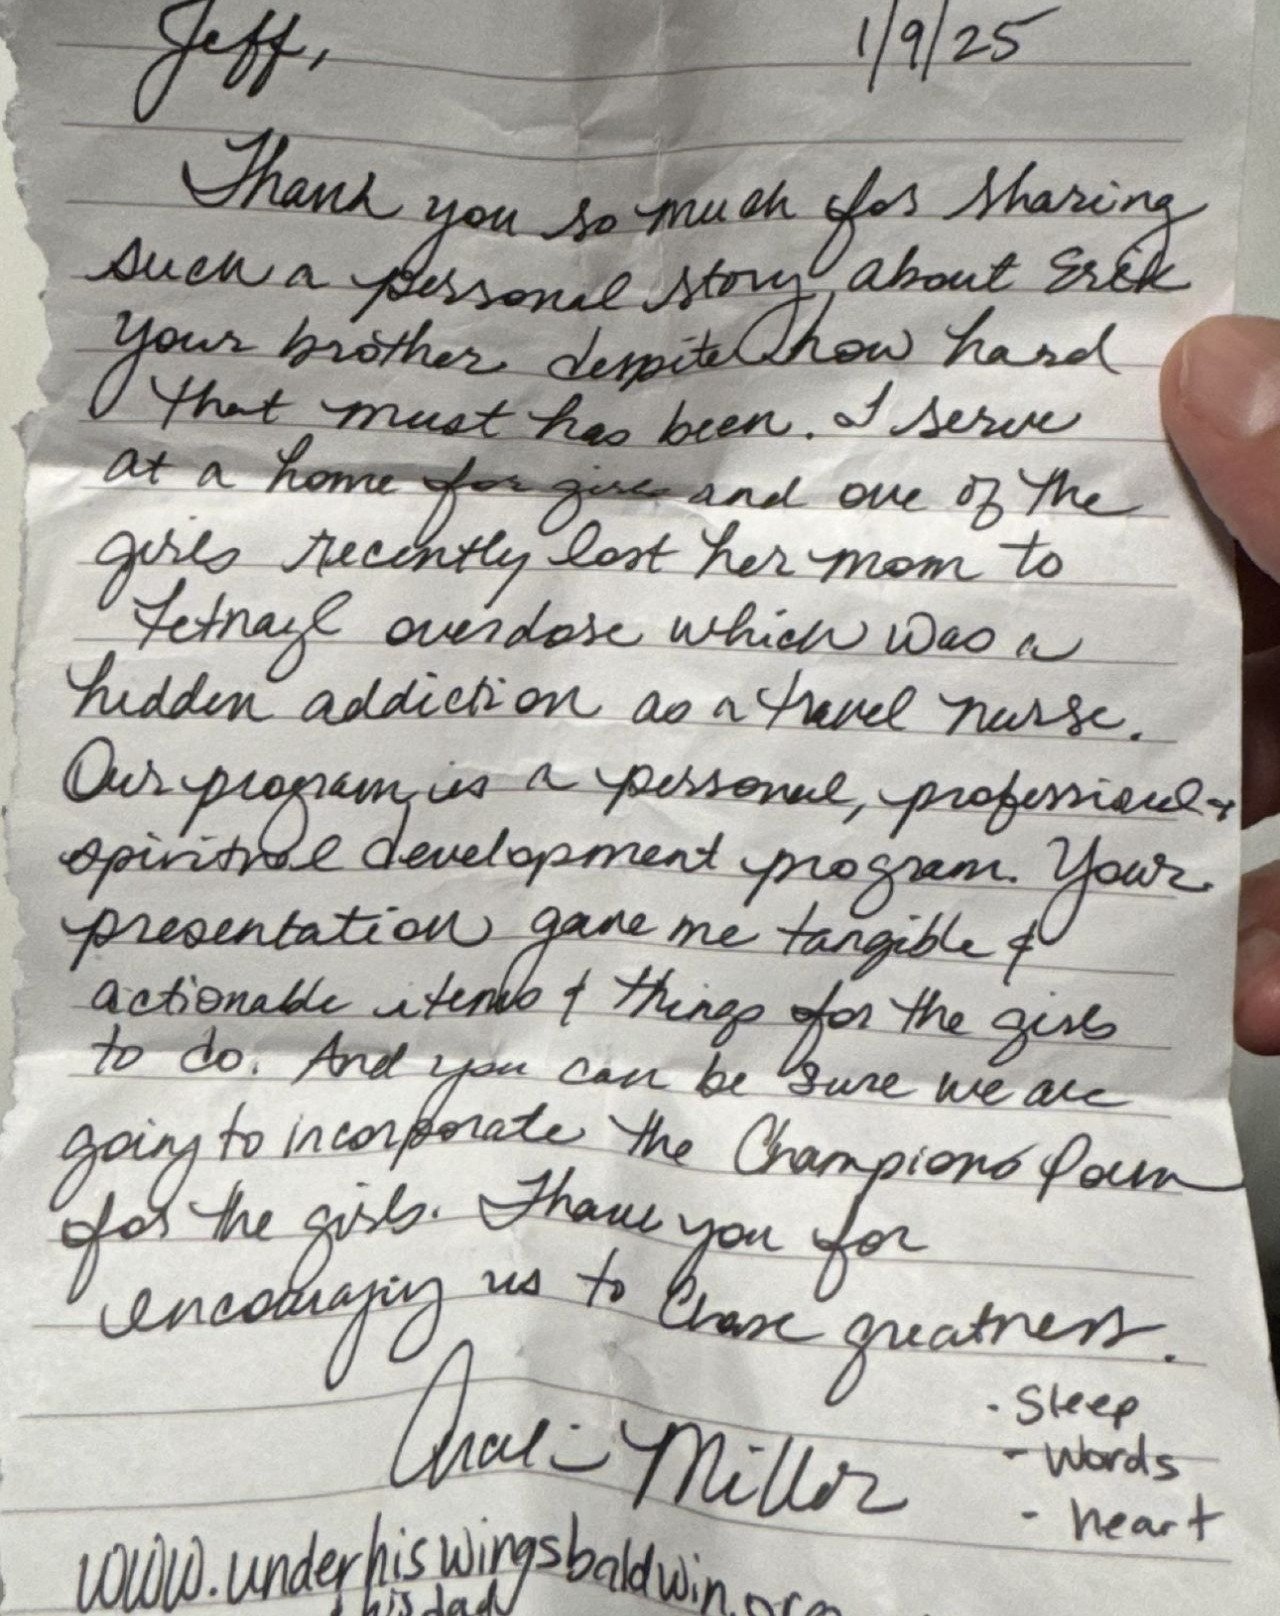 Jeff, 1/9/25
Thank you so much for sharing
such a personal story about Erik
your brother despite how hard
that must has been. I serve
at a home for girls and one of the
girls recently lost her mom to
Fetnayl overdose which was a
hidden addiction as a travel nurse.
Our program is a personal, professional +
spiritual development program. Your
presentation gave me tangible &
actionable items & things for the girls
to do. And you can be sure we are
going to incorporate the Champions
for the girls. Thank you for
encouraging us to Chase greatness.
Miller
- Sleep
- Words
- heart
www.underhiswingsbaldwin.org
his dad